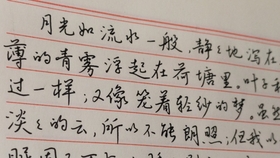 月光如流水一般，静々地泻在
薄的青雾浮起在荷塘里。叶子和
过一样；又像笼着轻纱的梦。虽
淡々的云，所以不能朗照；但我